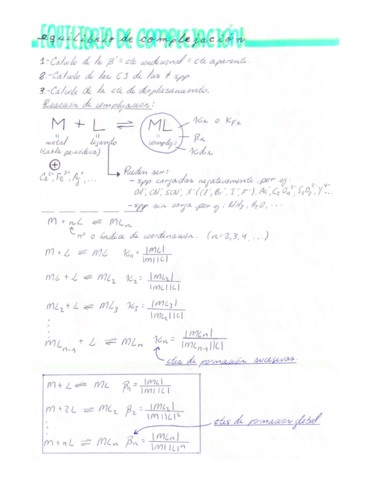 EQUILIBRIO DE COMPLEJACIÓN
1- Cálculo de la β' = cte condicional = cte aparente.
2- Cálculo de las CI de las ≠ spp
3- Cálculo de la cte de desplazamiento.
Reacción de complejación:
M + L ⇌ ML
metal ligando complejo
(tabla periódica)
βn
Pueden ser:
- spp cargadas negativamente, por ej:
- spp sin carga por ej: NH3, H2O, ...
M + nL ⇌ MLn
nº o índice de coordinación. (n=2,3,4, ...)
M + L ⇌ ML K1 = |ML| / |M||L|
ML + L ⇌ ML2 K2 = |ML2| / |ML||L|
ML2 + L ⇌ ML3 K3 = |ML3| / |ML2||L|
MLn-1 + L ⇌ MLn Kn = |MLn| / |MLn-1||L|
ctes de formación sucesivas
M + L ⇌ ML β1 = |ML| / |M||L|
M + 2L ⇌ ML2 β2 = |ML2| / |M||L|²
ctes de formación global
M + nL ⇌ MLn βn = |MLn| / |M||L|ⁿ